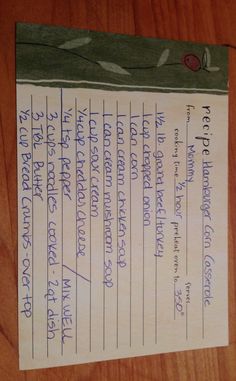 recipe Hamburger Corn Casserole
from Mommy serves
cooking time ½ hour preheat oven to 350°
1½ lb. ground beef/turkey
1 cup chopped onion
1 can corn
1 can cream chicken soup
1 can cream mushroom soup
1 cup sour cream
¼ cup cheddar cheese /
¼ tsp pepper / MIX WELL
3 cups noodles cooked - 2qt dish
3 Tbl. butter
½ cup Bread Crumbs over top